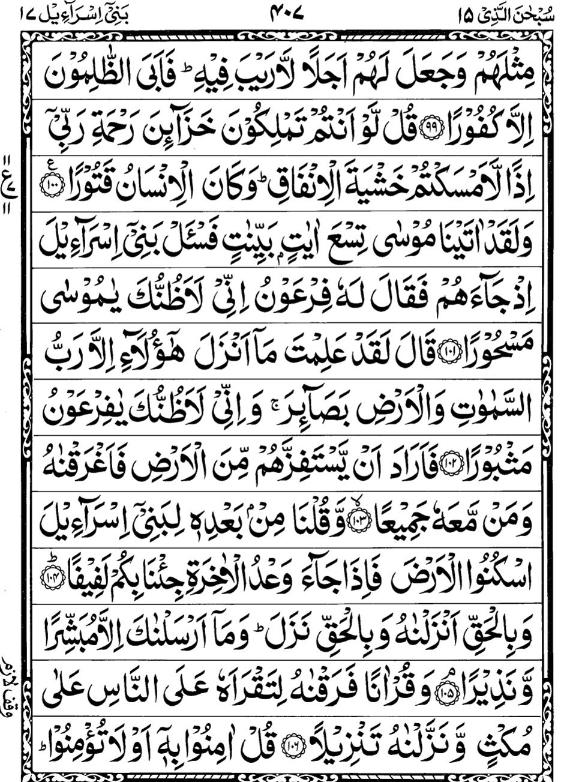 سُبْحٰنَ الَّذِیْۤ ۱۵
۴۰۷
بَنِیْۤ اِسْرَآءِیْل ۱۷
مِثْلَهُمْ وَجَعَلَ لَهُمْ اَجَلًا لَّارَیْبَ فِیْهِ ؕ فَاَبَی الظّٰلِمُوْنَ
اِلَّا كُفُوْرًا ﴿۹۹﴾ قُلْ لَّوْ اَنْتُمْ تَمْلِكُوْنَ خَزَآىِٕنَ رَحْمَةِ رَبِّیْۤ
اِذًا لَّاَمْسَكْتُمْ خَشْیَةَ الْاِنْفَاقِ ؕ وَكَانَ الْاِنْسَانُ قَتُوْرًا ﴿۱۰۰﴾ ع
۱۱
ع ۷
۱۱
وَلَقَدْ اٰتَیْنَا مُوْسٰى تِسْعَ اٰیٰتٍۭ بَیِّنٰتٍ فَسْـَٔلْ بَنِیْۤ اِسْرَآءِیْلَ
اِذْ جَآءَهُمْ فَقَالَ لَهٗ فِرْعَوْنُ اِنِّیْ لَاَظُنُّكَ یٰمُوْسٰى
مَسْحُوْرًا ﴿۱۰۱﴾ قَالَ لَقَدْ عَلِمْتَ مَاۤ اَنْزَلَ هٰۤؤُلَآءِ اِلَّا رَبُّ
السَّمٰوٰتِ وَالْاَرْضِ بَصَآىِٕرَ ۚ وَاِنِّیْ لَاَظُنُّكَ یٰفِرْعَوْنُ
مَثْبُوْرًا ﴿۱۰۲﴾ فَاَرَادَ اَنْ یَّسْتَفِزَّهُمْ مِّنَ الْاَرْضِ فَاَغْرَقْنٰهُ
وَمَنْ مَّعَهٗ جَمِیْعًا ﴿۱۰۳﴾ ۙ وَّقُلْنَا مِنْۢ بَعْدِهٖ لِبَنِیْۤ اِسْرَآءِیْلَ
اسْكُنُوا الْاَرْضَ فَاِذَا جَآءَ وَعْدُ الْاٰخِرَةِ جِئْنَا بِكُمْ لَفِیْفًا ﴿۱۰۴﴾ ؕ
وَبِالْحَقِّ اَنْزَلْنٰهُ وَبِالْحَقِّ نَزَلَ ؕ وَمَاۤ اَرْسَلْنٰكَ اِلَّا مُبَشِّرًا
وَّنَذِیْرًا ﴿۱۰۵﴾ ۘ وَقُرْاٰنًا فَرَقْنٰهُ لِتَقْرَاَهٗ عَلَى النَّاسِ عَلٰى
وقف لازم
مُكْثٍ وَّنَزَّلْنٰهُ تَنْزِیْلًا ﴿۱۰۶﴾ قُلْ اٰمِنُوْا بِهٖۤ اَوْ لَا تُؤْمِنُوْا ؕ